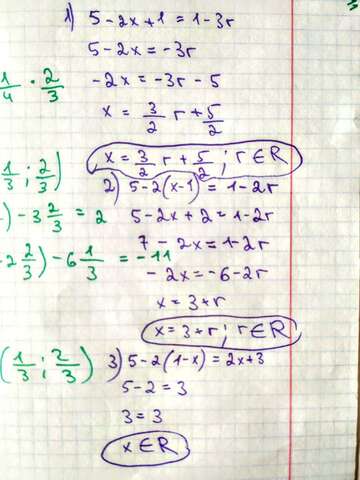 1) 5-2x+1=1-3r
5-2x=-3r
-2x=-3r-5
x=3/2 r+5/2
x=3/2 r+5/2; r∈R
2) 5-2(x-1)=1-2r
5-2x+2=1-2r
7-2x=1-2r
-2x=-6-2r
x=3+r
x=3+r; r∈R
3) 5-2(1-x)=2x+3
5-2=3
3=3
x∈R
1/4 · 2/3
1/3; 2/3)
)-3 2/3=2
2 2/3)-6 1/3=-11
(1/3; 2/3)